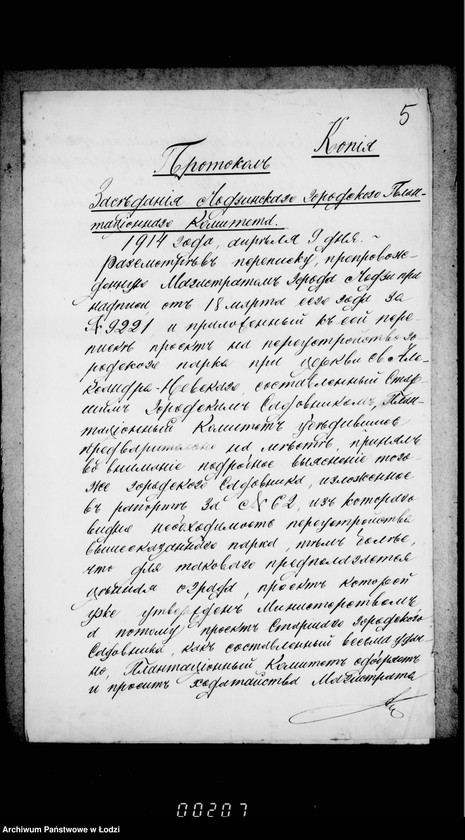 5
Копія
Протоколъ
Засѣданія Лодзинскаго Городского План-
таціоннаго Комитета.
1914 года, апрѣля 9 дня. -
Разсмотрѣвъ переписку, препровож-
денную Магистратомъ города Лодзи при
надписи отъ 18 марта сего года за
№ 9221, и приложенный къ сей пере-
пискѣ проектъ на переустройство го-
родского парка при церкви св. Але-
ксандра-Невскаго, составленный Стар-
шимъ Городскимъ Садовникомъ, План-
таціонный Комитетъ убѣдившись
предварительно на мѣстѣ, принялъ
во вниманіе подробное выясненіе того-
же городского Садовника, изложенное
въ рапортѣ за № 62, изъ котораго
видна необходимость переустройства
вышесказаннаго парка, тѣмъ болѣе,
что для такового предполагается
ограда, проектъ которой
уже утвержденъ Министерствомъ
а потому проектъ Старшаго городского
Садовника, какъ составленный весьма удач-
но, Плантаціонный Комитетъ одобряетъ
и проситъ ходатайства Магистрата
00207
Archiwum Państwowe w Łodzi